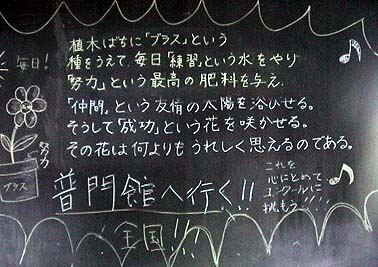 毎日!
植木ばちに「ブラス」という
種をうえて、毎日「練習」という水をやり
「努力」という最高の肥料を与え、
「仲間」という友情の太陽を浴びせる。
そして「成功」という花を咲かせる。
その花は何よりもうれしく思えるのである。
努力
ブラス
普門館へ行く!!
これを
心にとめて
コンクールに
挑もう!!!!
全国!!!